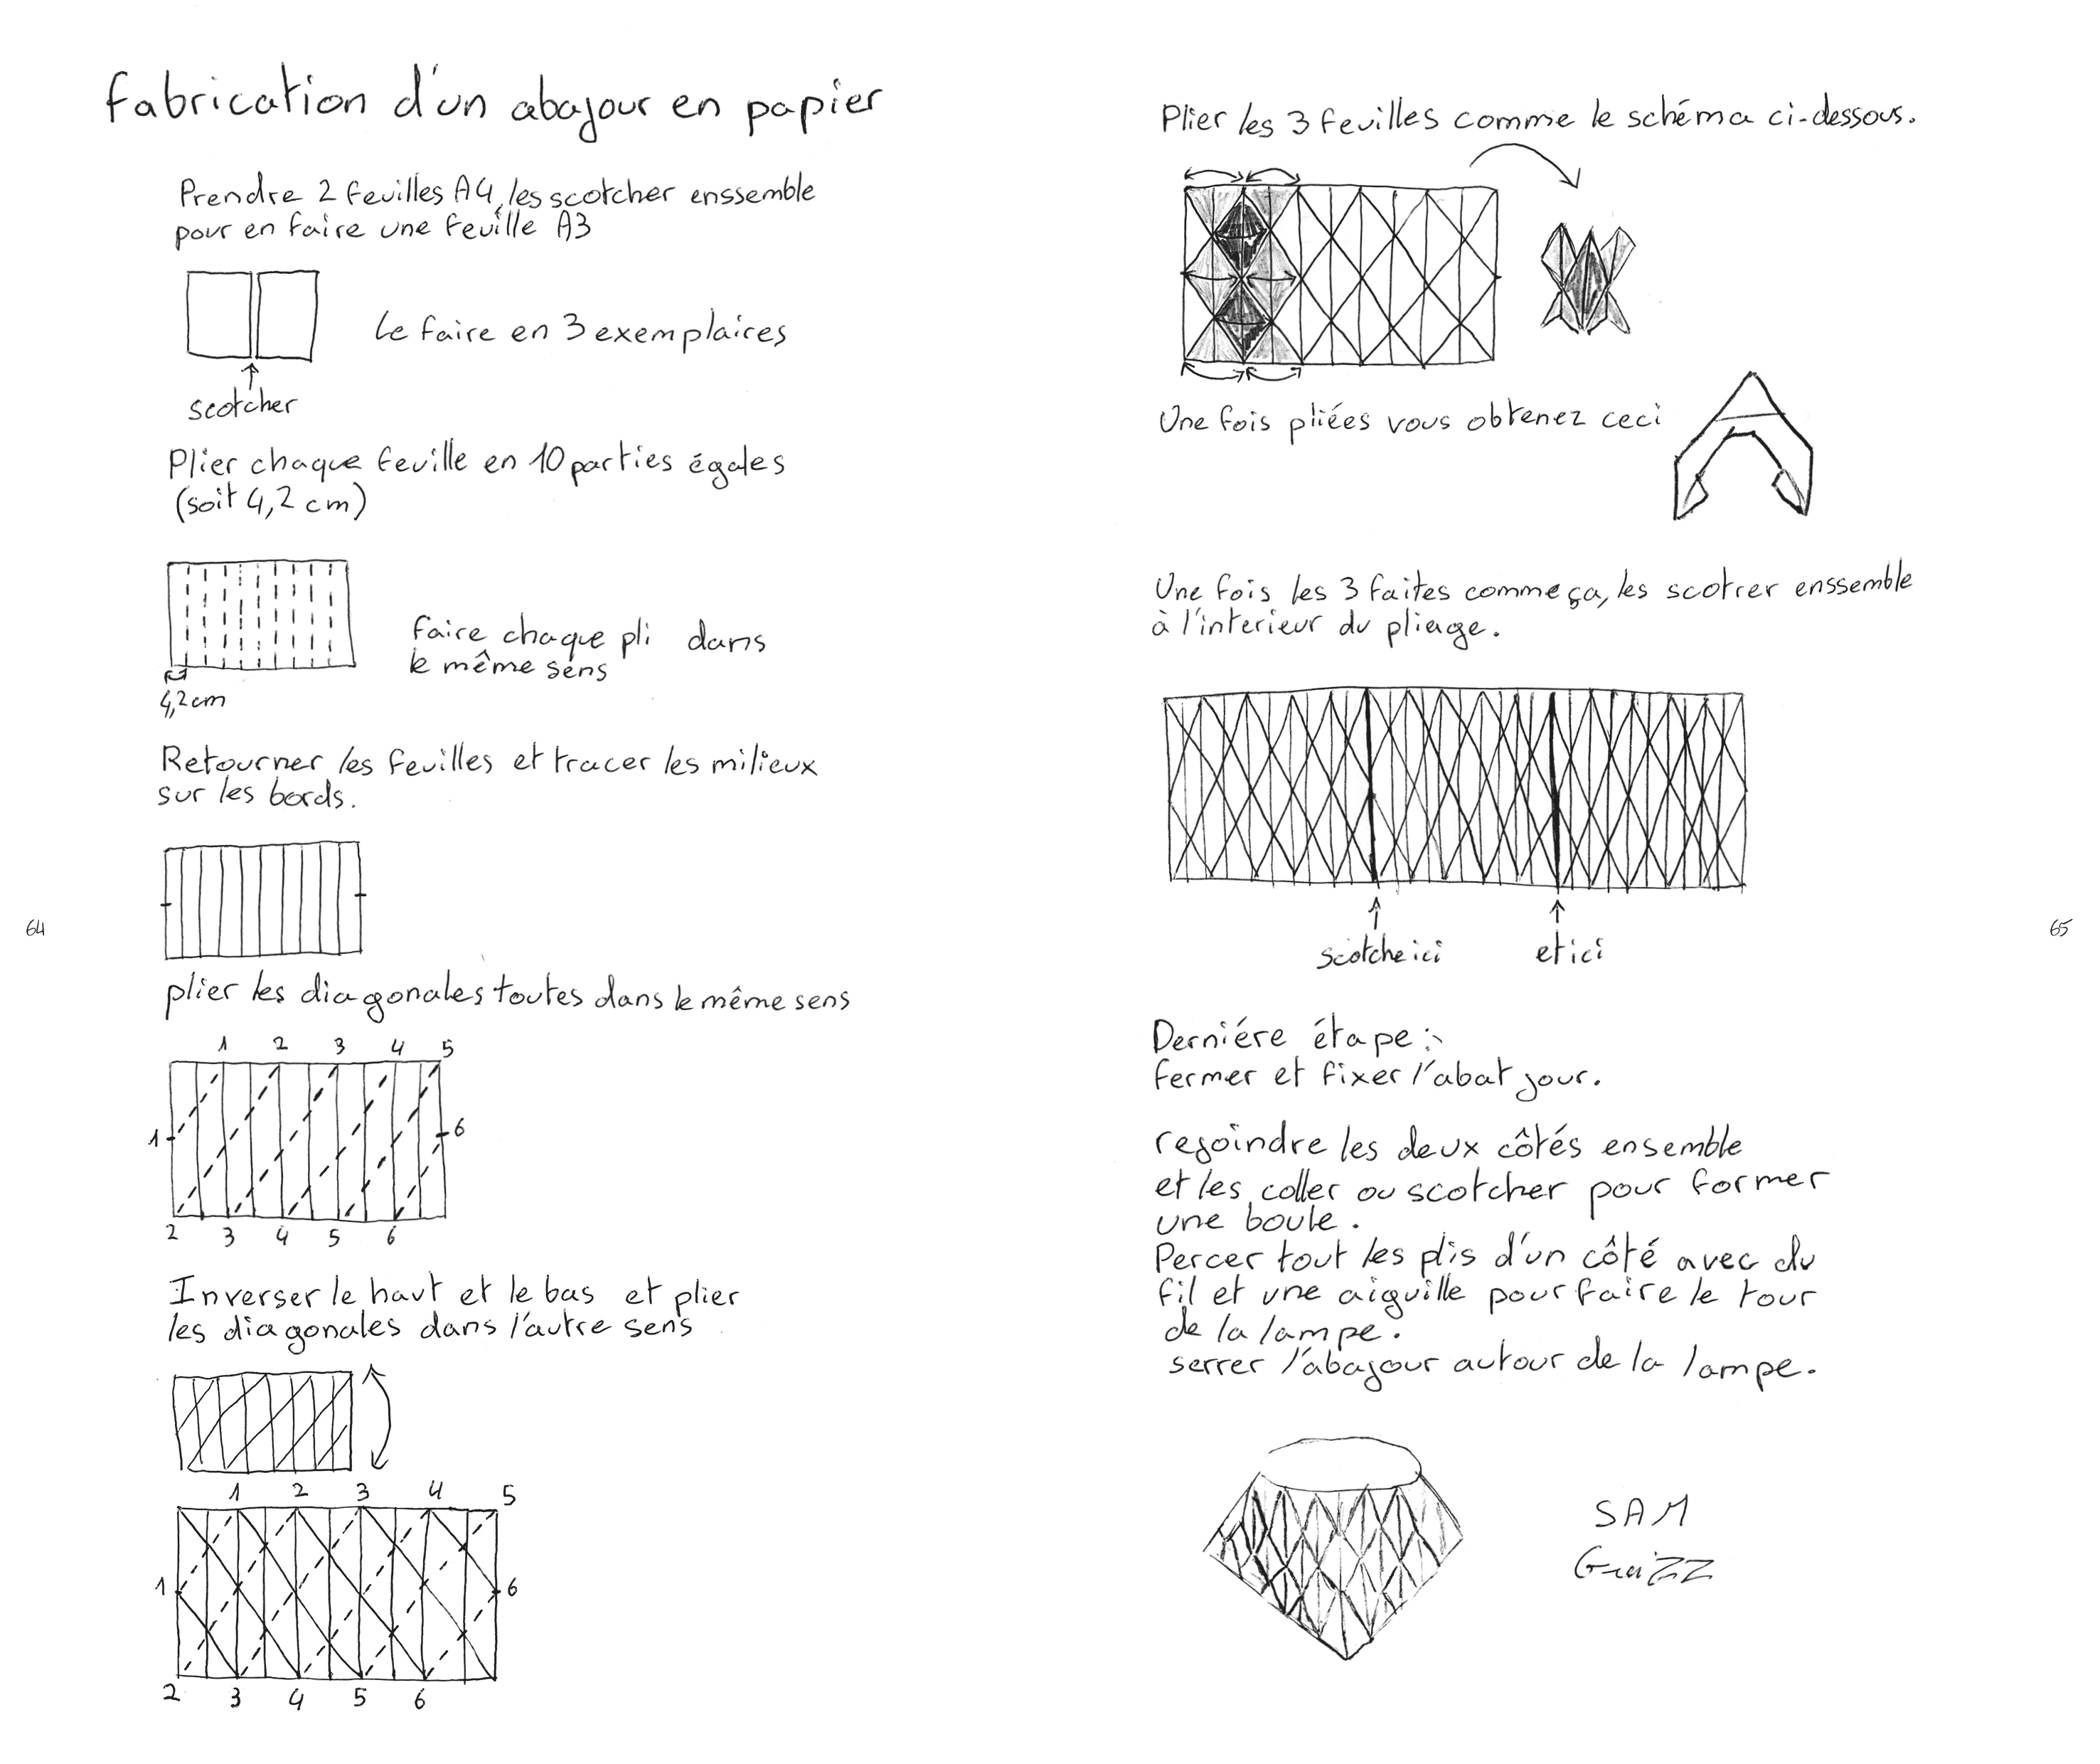 Fabrication d'un abajour en papier
Prendre 2 feuilles A4, les scotcher enssemble
pour en faire une feuille A3
Le faire en 3 exemplaires
scotcher
Plier chaque feuille en 10 parties égales
(soit 4,2 cm)
Faire chaque pli dans
le même sens
4,2 cm
Retourner les feuilles et tracer les milieux
sur les bords.
64
plier les diagonales toutes dans le même sens
1 2 3 4 5
1 6
2 3 4 5 6
Inverser le haut et le bas et plier
les diagonales dans l'autre sens
1 2 3 4 5
1 6
2 3 4 5 6
Plier les 3 feuilles comme le schéma ci-dessous.
Une fois pliées vous obtenez ceci
Une fois les 3 faites comme ça, les scotrer enssemble
à l'interieur du pliage.
65
scotche ici et ici
Derniére étape :
Fermer et fixer l'abat jour.
rejoindre les deux côtés ensemble
et les coller ou scotcher pour former
une boule.
Percer tout les plis d'un côté avec du
fil et une aiguille pour faire le tour
de la lampe.
serrer l'abajour autour de la lampe.
SAM